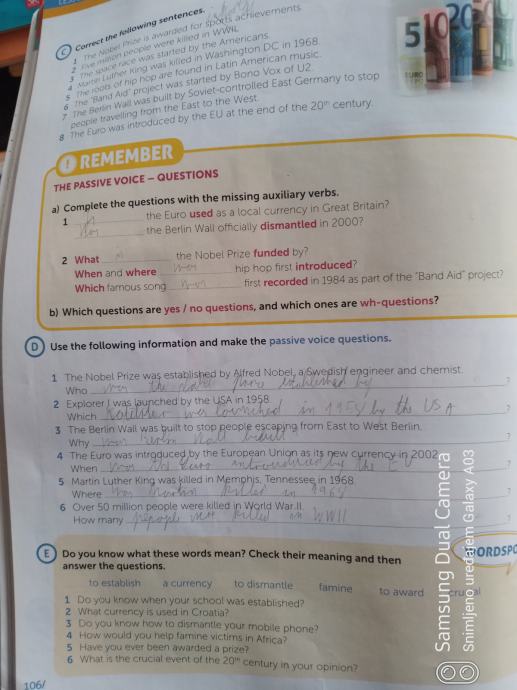 C Correct the following sentences.
1 The Nobel Prize is awarded for sports achievements.
2 Five million people were killed in WWII.
3 The space race was started by the Americans.
4 Martin Luther King was killed in Washington DC in 1968.
5 The roots of hip hop are found in Latin American music.
6 The "Band Aid" project was started by Bono Vox of U2.
7 The Berlin Wall was built by Soviet-controlled East Germany to stop
people travelling from the East to the West.
8 The Euro was introduced by the EU at the end of the 20th century.
5 10 20
EURO
! REMEMBER
THE PASSIVE VOICE – QUESTIONS
a) Complete the questions with the missing auxiliary verbs.
1 the Euro used as a local currency in Great Britain?
the Berlin Wall officially dismantled in 2000?
2 What the Nobel Prize funded by?
When and where was hip hop first introduced?
Which famous song was first recorded in 1984 as part of the "Band Aid" project?
b) Which questions are yes / no questions, and which ones are wh-questions?
D Use the following information and make the passive voice questions.
1 The Nobel Prize was established by Alfred Nobel, a Swedish engineer and chemist.
Who was the nobel prize established by ?
2 Explorer I was launched by the USA in 1958.
Which was launched in 1958 by the USA ?
3 The Berlin Wall was built to stop people escaping from East to West Berlin.
Why was Berlin Wall built ?
4 The Euro was introduced by the European Union as its new currency in 2002.
When was the Euro introduced by the EU ?
5 Martin Luther King was killed in Memphis, Tennessee in 1968.
Where was Martin killed in 1968 ?
6 Over 50 million people were killed in World War II.
How many people killed in WWII ?
E Do you know what these words mean? Check their meaning and then
answer the questions.
WORDSPO
to establish a currency to dismantle famine to award crucial
1 Do you know when your school was established?
2 What currency is used in Croatia?
3 Do you know how to dismantle your mobile phone?
4 How would you help famine victims in Africa?
5 Have you ever been awarded a prize?
6 What is the crucial event of the 20th century in your opinion?
106/
Samsung Dual Camera
Snimljeno uređajem Galaxy A03